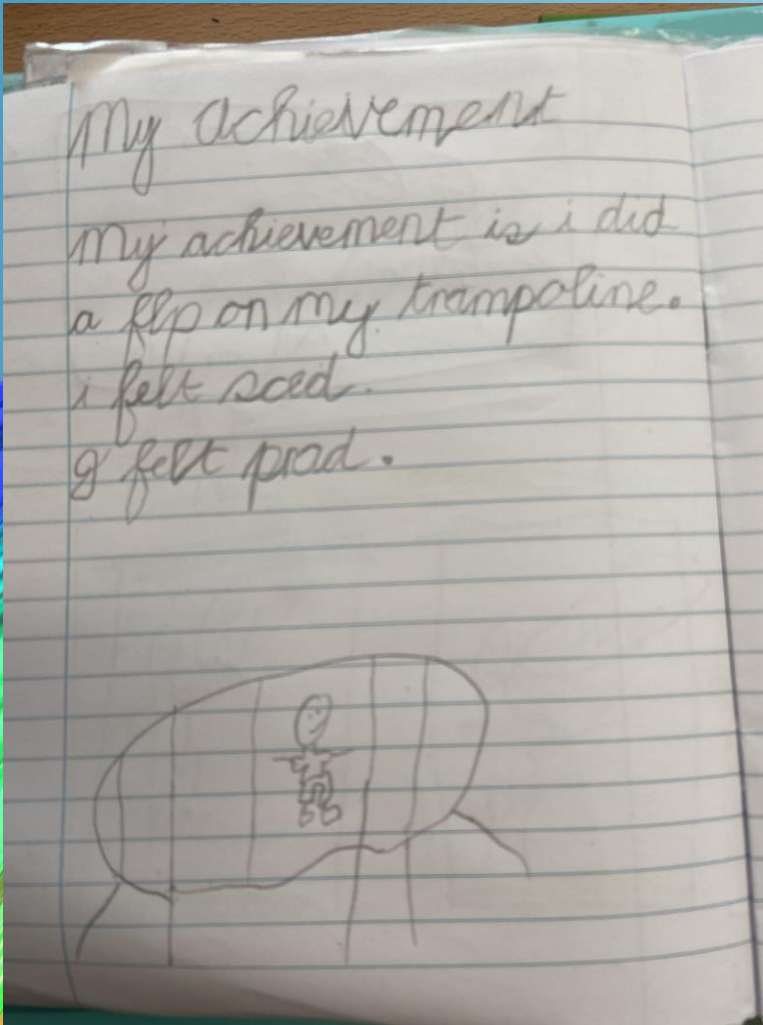 My achievement
My achievement is i did
a flip on my trampoline.
i felt sced.
I felt prad.